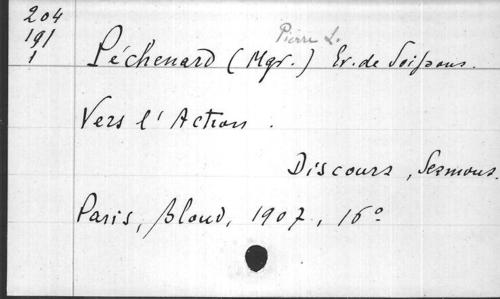 204
191
1
Pierre L.
Péchenard (Mgr.) Ev. de Soissons.
Vers l'Action.
Discours, Sermons.
Paris, Bloud, 1907, 16º